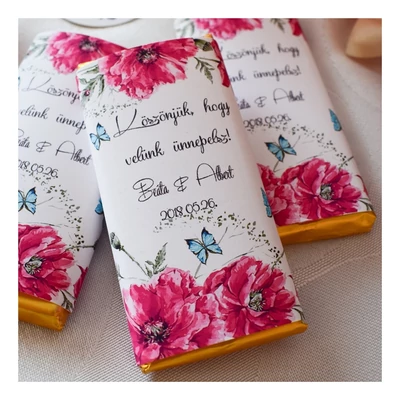 Köszönjük, hogy
velünk ünnepelsz!
Beáta & Albert
2018.05.26.
Köszönjük, hogy
velünk ünnepelsz!
Beáta & Albert
2018.05.26.
Köszönjük, hogy
velünk ünnepelsz!
Beáta & Albert
2018.05.26.